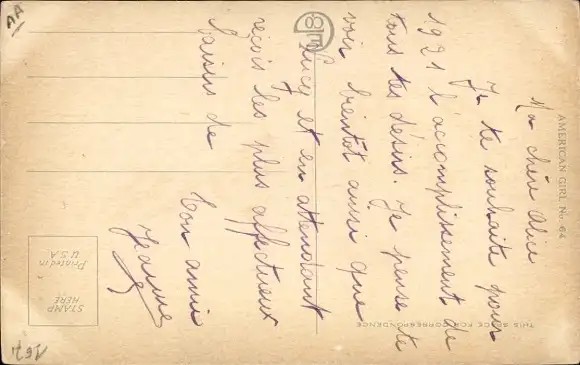 Ma chère Alice
Je te souhaite pour
1921 l'accomplissement de
tous tes désirs. Je pense te
voir bientôt ainsi que
Lucy et en attendant
reçois les plus affectueux
baisers de
Ton amie
Jeanne
AMERICAN GIRL No. 64
THIS SPACE FOR CORRESPONDENCE
STAMP
HERE
Printed in
U.S.A
AA
167